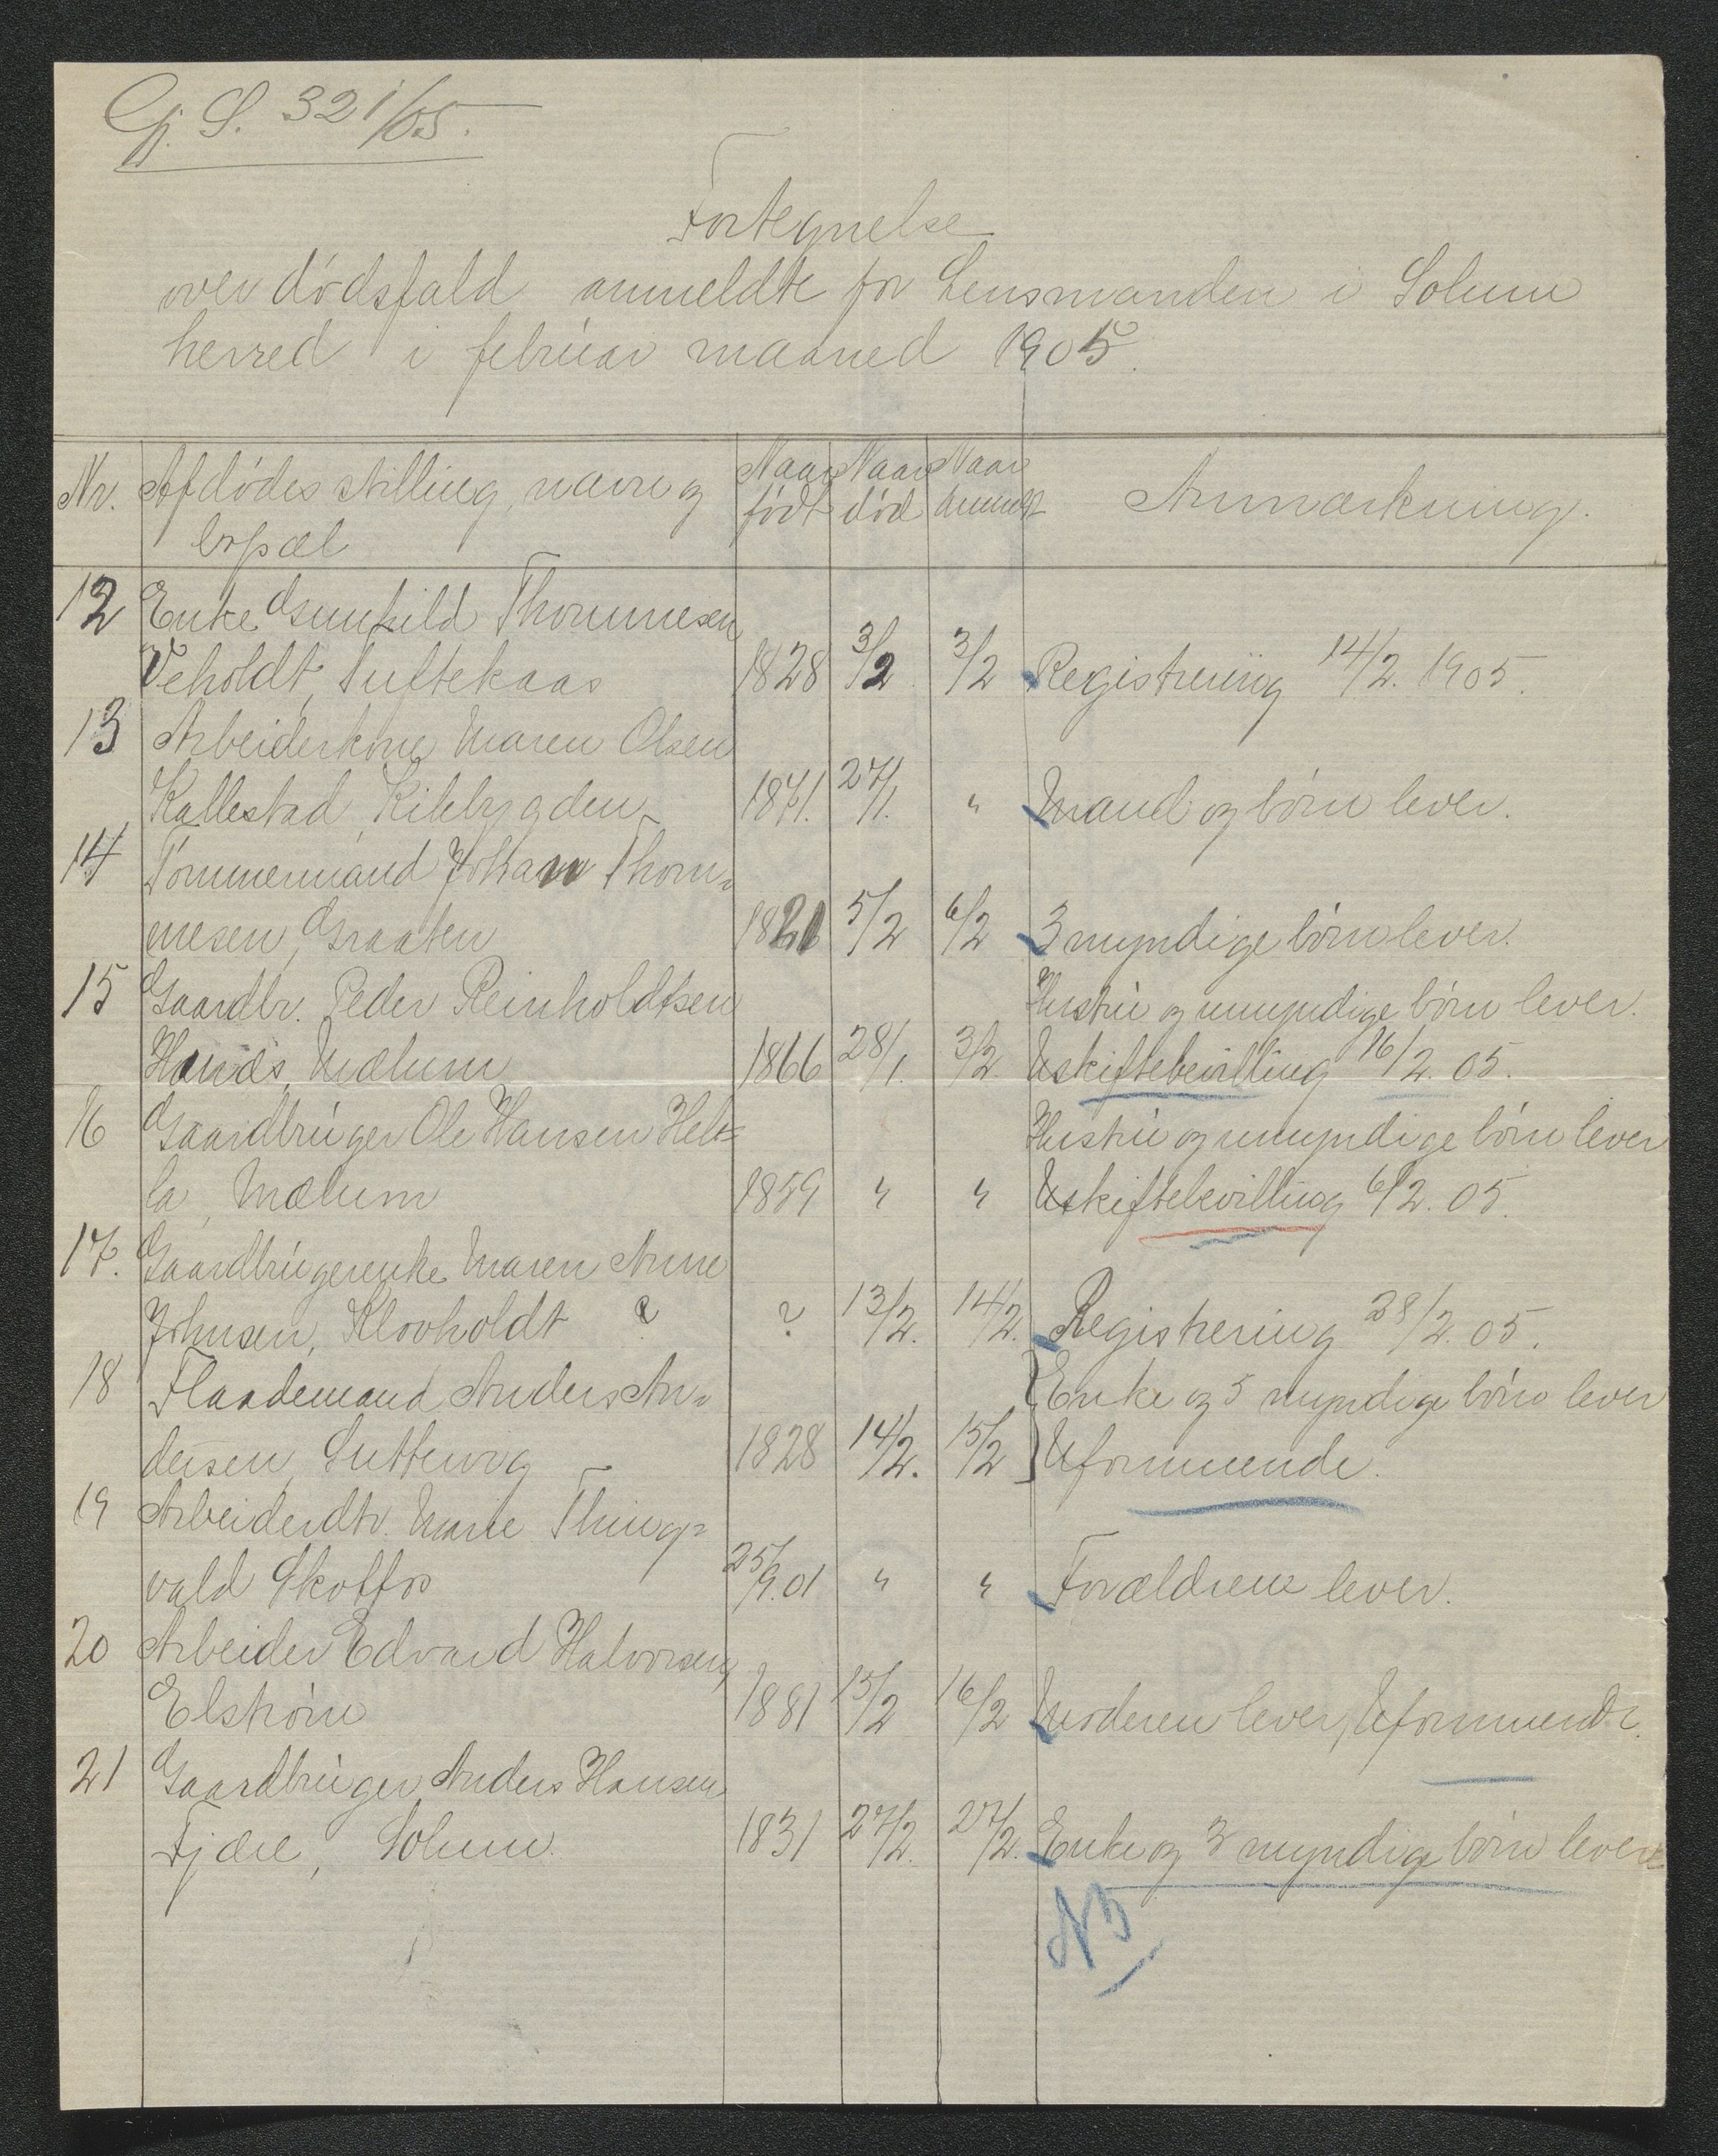 Gj. S. 321/05.
Fortegnelse
over dødsfald anmeldte for Lensmanden i Solum
herred i februar maaned 1905.
Nr. Afdødes stilling, navn og bopæl Naar født Naar død Naar anmeldt Anmærkning.
12 Enke Gunhild Thommesen
Veholdt, Tuftekaas 1828 3/2 3/2 Registrering 14/2. 1905.
13 Arbeiderkone Maren Olsen
Kallestad, Kilebygden 1871. 27/1. " Mand og børn lever.
14 Tømmermand Johan Thom-
mesen, Graaten 1821 5/2 6/2 3 myndige børn lever.
15 Gaardbr. Peder Reinholdtsen Hustru og umyndige børn lever.
Mælum 1866 28/1. 3/2. Uskiftebevilling 16/2. 05.
16 Gaardbruger Ole Hansen Hel- Hustru og umyndige børn lever
la, Mælum 1859 " " Uskiftebevilling 6/2. 05.
17. Gaardbrugerenke Maren Anne
Johnsen, Klovholdt ? ? 13/2. 14/2. Registrering 28/2. 05.
18 Flaademand Anders An- Enke og 5 myndige børn lever
dersen, 1828 14/2. 15/2 Uformuende.
19 Arbeiderdtr. Marie Thing-
vald Skotfos 25/9.01 " " Forældrene lever.
20 Arbeider Edvard Halvorsen,
Elstrøm 1881 15/2 16/2 Moderen lever, Uformuende.
21 Gaardbruger Anders Hansen
Fjære, Solum. 1831 27/2. 27/2. Enke og 3 myndige børn lever
NB